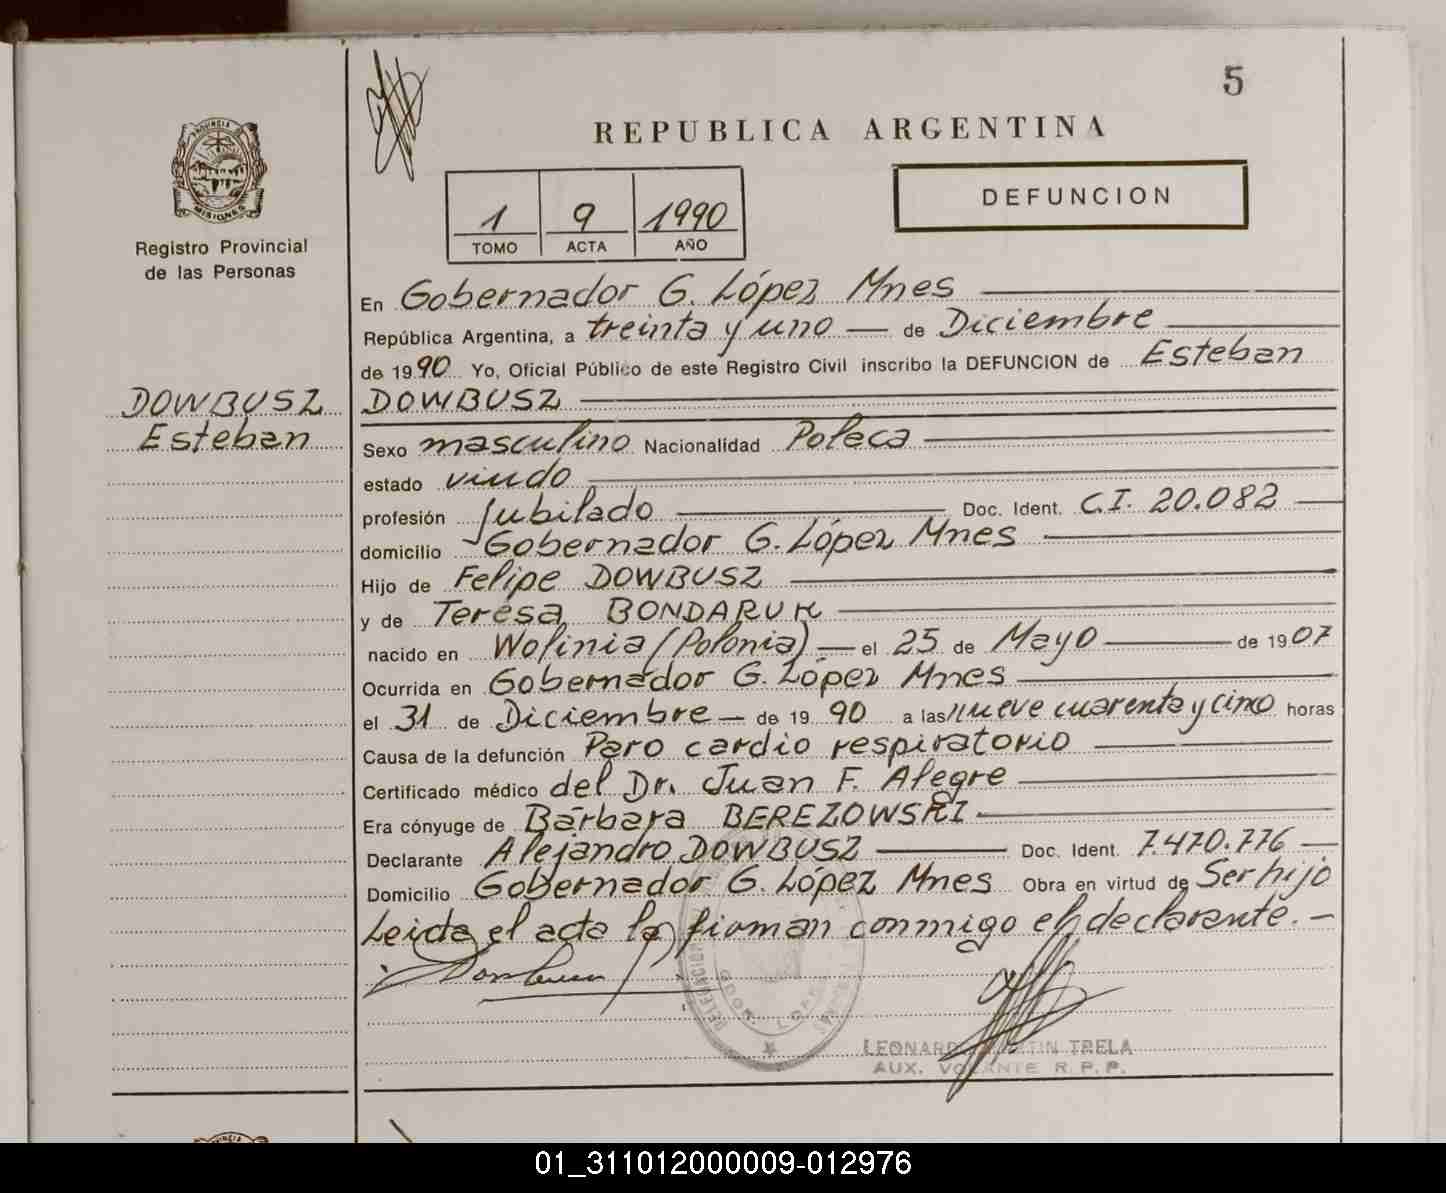 5
REPUBLICA ARGENTINA
PROVINCIA DE
MISIONES
Registro Provincial
de las Personas
1 9 1990
TOMO ACTA AÑO
DEFUNCION
DOWBUSZ
Esteban
En Gobernador G. López Mnes
República Argentina, a treinta y uno — de Diciembre
de 1990 Yo, Oficial Público de este Registro Civil inscribo la DEFUNCION de Esteban
DOWBUSZ
Sexo masculino Nacionalidad Polaca
estado viudo
profesión Jubilado Doc. Ident. C.I. 20.082
domicilio Gobernador G. López Mnes
Hijo de Felipe DOWBUSZ
y de Teresa BONDARUK
nacido en Wolinia (Polonia) — el 25 de Mayo de 1907
Ocurrida en Gobernador G. López Mnes
el 31 de Diciembre — de 1990 a las nueve cuarenta y cinco horas
Causa de la defunción Paro cardio respiratorio
Certificado médico del Dr. Juan F. Alegre
Era cónyuge de Bárbara BEREZOWSKI
Declarante Alejandro DOWBUSZ Doc. Ident. 7.470.776
Domicilio Gobernador G. López Mnes Obra en virtud de Ser hijo
Leida el acta la firman conmigo el declarante. —
TRELA
AUX. VOLANTE R.P.P.
01_311012000009-012976